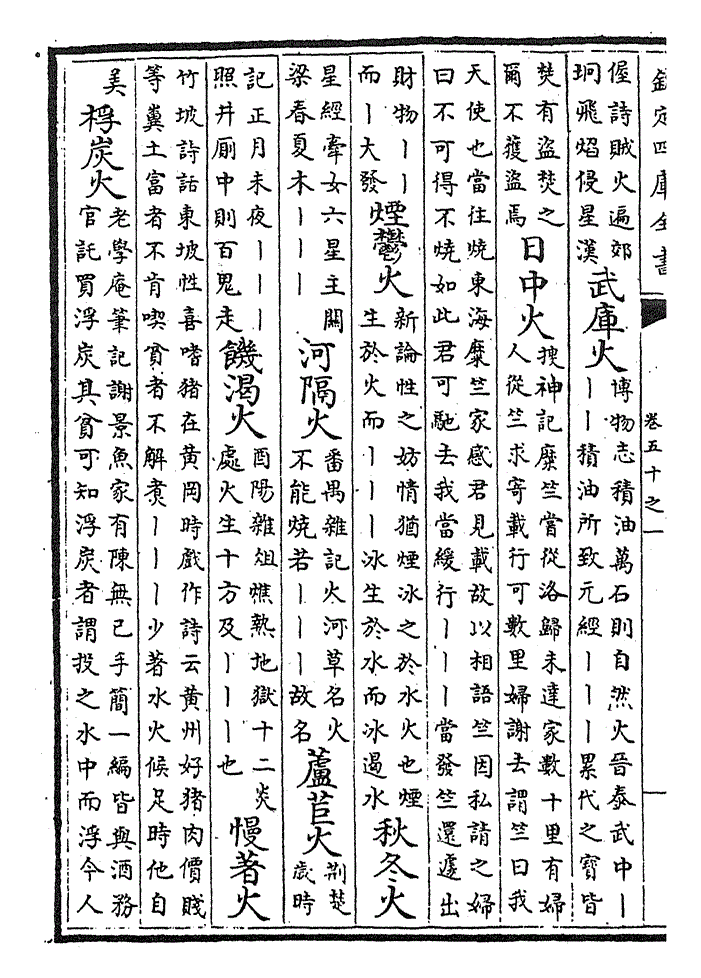 欽定四庫全書 卷五十之一
偓詩賊火遍郊
坰飛焰侵星漢
武庫火
博物志積油萬石則自然火晉泰武中丨
丨丨積油所致元經丨丨丨累代之寶皆
焚有盜焚之
爾不獲盜焉
日中火
搜神記糜竺嘗從洛歸未達家數十里有婦
人從竺求寄載行可數里婦謝去謂竺曰我
天使也當往燒東海糜竺家感君見載故以相語竺因私請之婦
曰不可得不燒如此君可馳去我當緩行丨丨丨當發竺還遽出
財物丨丨
而丨大發
煙鬱火
新論性之妨情猶煙冰之於水火也煙
生於火而丨丨丨冰生於水而冰遏水
秋冬火
星經牽女六星主關
梁春夏木丨丨丨
河隔火
番禺雜記火河草名火
不能燒若丨丨丨故名
蘆苣火
荆楚
歲時
記正月未夜丨丨丨
照井厠中則百鬼走
饑渴火
酉陽雜俎燋熱地獄十二炎
處火生十方及丨丨丨也
慢著火
竹坡詩話東坡性喜嗜猪在黄岡時戲作詩云黄州好猪肉價賤
等糞土富者不肯喫貧者不解煑丨丨丨少著水火候足時他自
美
桴炭火
老學庵筆記謝景魚家有陳無已手簡一編皆與酒務
官託買浮炭其貧可知浮炭者謂投之水中而浮今人